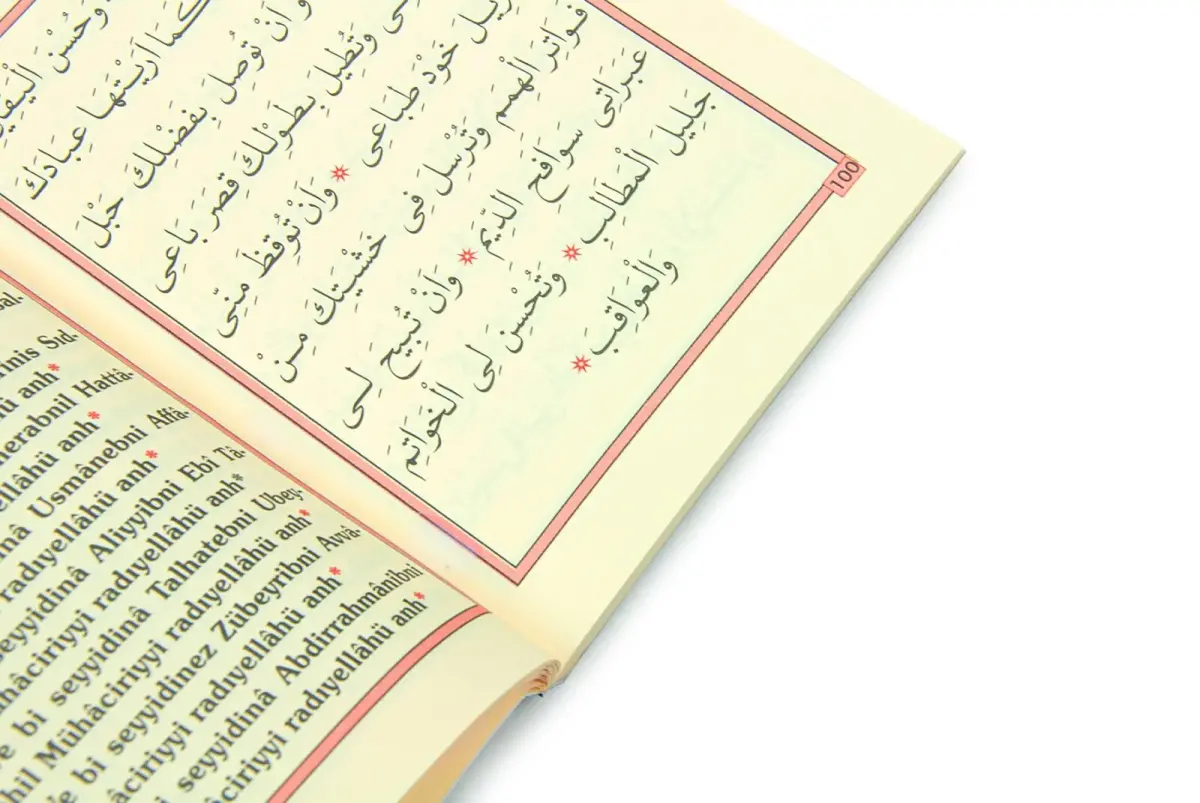 وَحُسْنَ
كَمَا اَرَيْتَهَا عِبَادَكَ
وَاَنْ تُوصِلَ بِفَضْلِكَ حَبْلَ
وَتُطِيلَ بِطَوْلِكَ قِصَرَ بَاعِى
خَوْدَ طِبَاعِى * وَاَنْ تُوقِظَ مِنِّى
فَوَاتِرَ الْهِمَمِ وَتُرْسِلَ فِى خَشْيَتِكَ مِنْ
عَبَرَاتِى سَوَافِحَ الدِّيَمِ * وَاَنْ تُبِيحَ لِى
جَلِيلَ الْمَطَالِبِ * وَتُحْسِنَ لِىَ الْخَوَاتِمَ
وَالْعَوَاقِبَ *
100
Sıd-
anh*
Hattâ-
anh*
Usmânebni Affâ-
radıyellâhü anh*
seyyidinâ Aliyyibni Ebî Tâ-
radıyellâhü anh*
bi seyyidinâ Talhatebni Ubey-
Mühâciriyyi radıyellâhü anh*
bi seyyidinez Zübeyribni Avvâ-
radıyellâhü anh*
seyyidinâ Abdirrahmânibni
radıyellâhü anh*